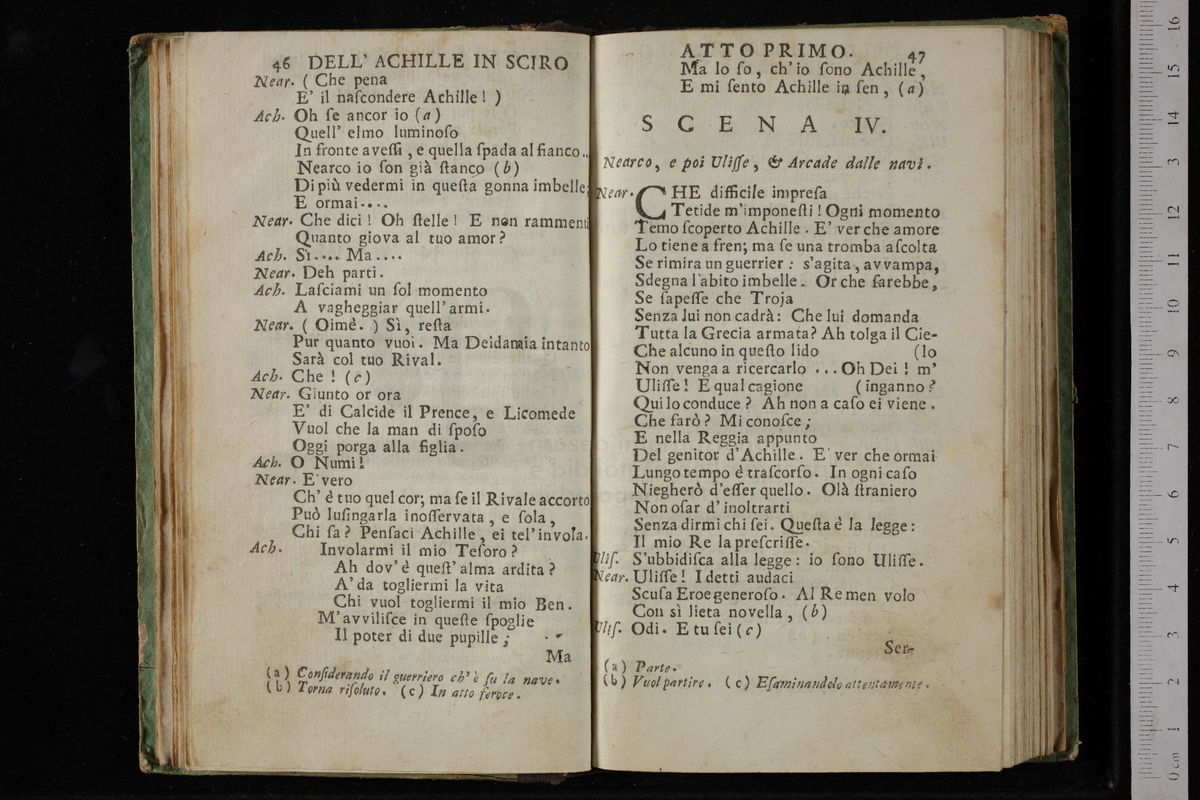 46 DELL' ACHILLE IN SCIRO
Near. ( Che pena
E' il naſcondere Achille ! )
Ach. Oh ſe ancor io (a)
Quell' elmo luminoſo
In fronte aveſſi , e quella ſpada al fianco..
Nearco io ſon già ſtanco (b)
Di più vedermi in queſta gonna imbelle;
E ormai....
Near. Che dici ! Oh ſtelle ! E non rammenti
Quanto giova al tuo amor ?
Ach. Sì.... Ma....
Near. Deh parti.
Ach. Laſciami un ſol momento
A vagheggiar quell' armi.
Near. ( Oimè. ) Sì, reſta
Pur quanto vuoi. Ma Deidamia intanto
Sarà col tuo Rival.
Ach. Che ! (c)
Near. Giunto or ora
E' di Calcide il Prence, e Licomede
Vuol che la man di ſpoſo
Oggi porga alla figlia.
Ach. O Numi!
Near. E' vero
Ch' è tuo quel cor; ma ſe il Rivale accorto
Può luſingarla inoſſervata, e ſola,
Chi ſa? Penſaci Achille, ei tel' invola.
Ach. Involarmi il mio Teſoro ?
Ah dov' è queſt' alma ardita ?
A' da togliermi la vita
Chi vuol togliermi il mio Ben.
M' avviliſce in queſte ſpoglie
Il poter di due pupille ;
Ma
(a) Conſiderando il guerriero ch' è ſu la nave.
(b) Torna riſoluto. (c) In atto feroce.
ATTO PRIMO. 47
Ma lo ſo, ch' io ſono Achille,
E mi ſento Achille in ſen, (a)
SCENA IV.
Nearco, e poi Uliſſe, & Arcade dalle navi.
Near. CHE difficile impreſa
Tetide m'imponeſti ! Ogni momento
Temo ſcoperto Achille. E' ver che amore
Lo tiene a fren; ma ſe una tromba aſcolta
Se rimira un guerrier : s'agita, avvampa,
Sdegna l'abito imbelle. Or che farebbe,
Se ſapeſſe che Troja
Senza lui non cadrà: Che lui domanda
Tutta la Grecia armata? Ah tolga il Cie-
Che alcuno in queſto lido (lo
Non venga a ricercarlo ... Oh Dei ! m'
Uliſſe ! E qual cagione (inganno ?
Qui lo conduce ? Ah non a caſo ei viene.
Che farò ? Mi conoſce ;
E nella Reggia appunto
Del genitor d'Achille. E' ver che ormai
Lungo tempo è traſcorſo. In ogni caſo
Niegherò d'eſſer quello. Olà ſtraniero
Non oſar d' inoltrarti
Senza dirmi chi ſei. Queſta è la legge:
Il mio Re la preſcriſſe.
Uliſ. S'ubbidiſca alla legge: io ſono Uliſſe.
Near. Uliſſe ! I detti audaci
Scuſa Eroe generoſo. Al Re men volo
Con sì lieta novella, (b)
Uliſ. Odi. E tu ſei (c)
Ser-
(a) Parte.
(b) Vuol partire. (c) Eſaminandolo attentamente.
0 cm 1 2 3 4 5 6 7 8 9 10 11 12 13 14 15 16